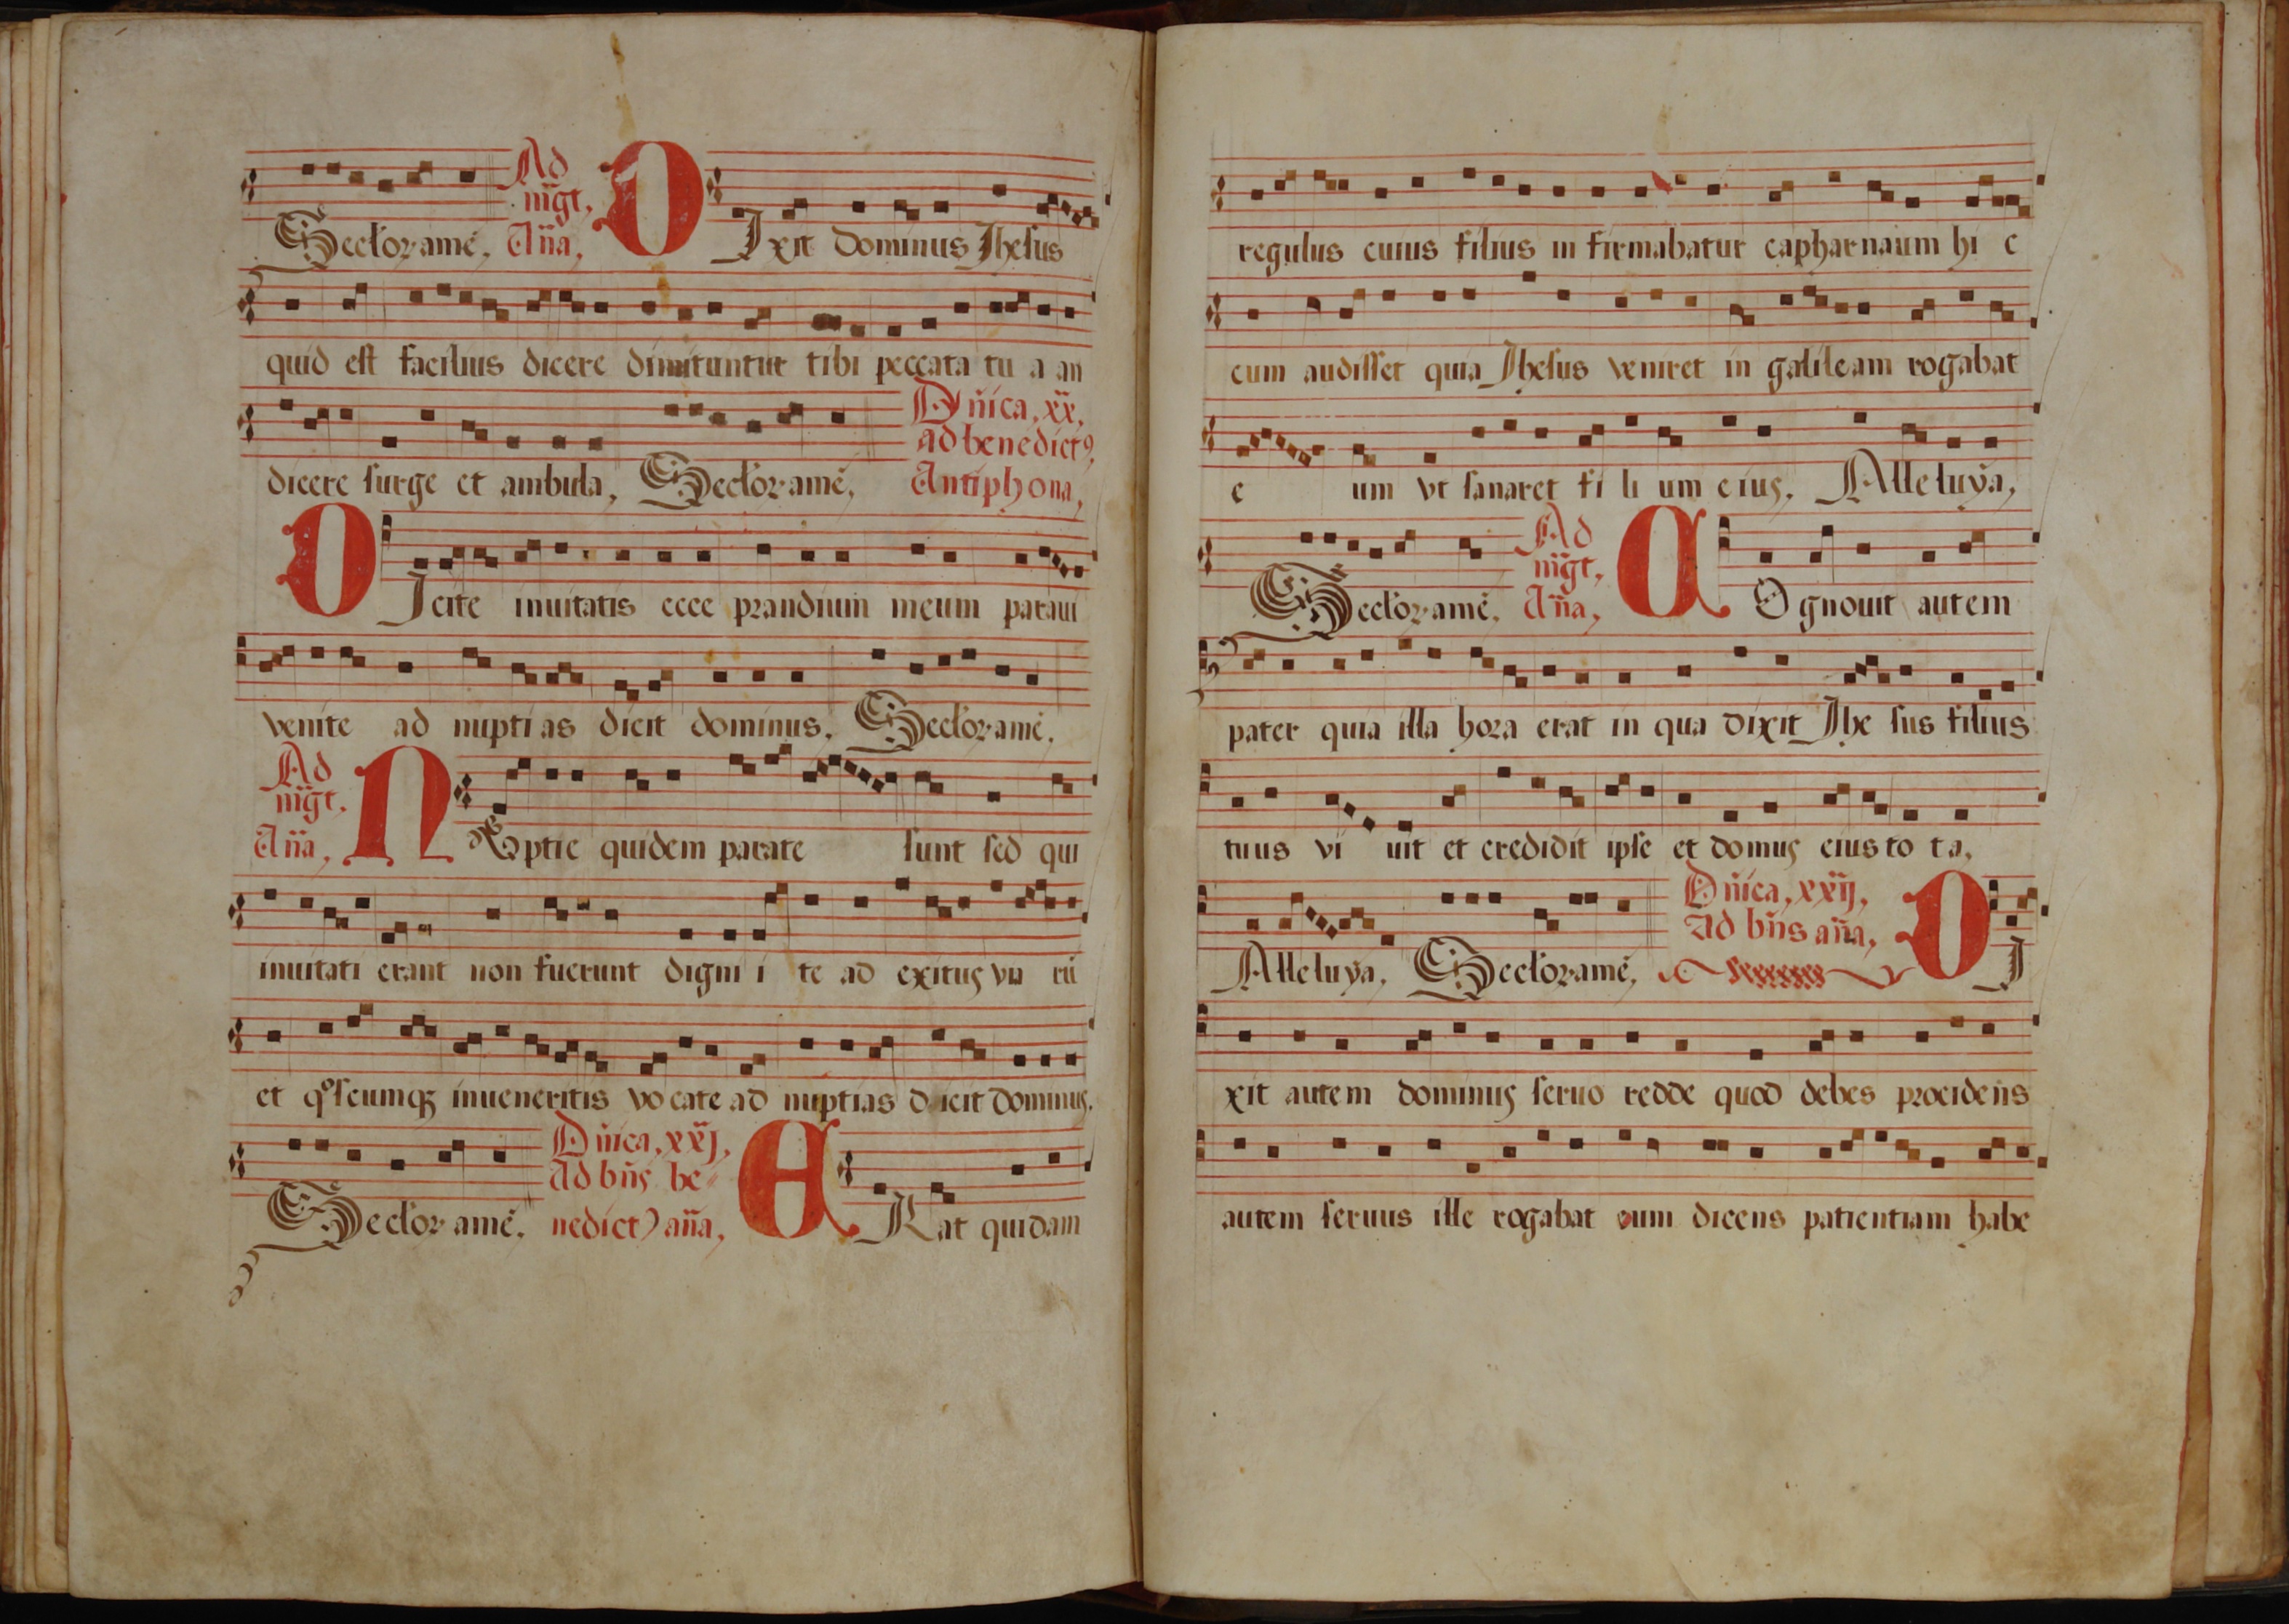 Seculorz amē, Ad
m̄gt,
An̄a, DIxit dominus Jhesus
quid est facilius dicere dimituntur tibi peccata tu a an
dicere surge et ambula, Seculorz amē, Dn̄ica, xx,
ad benedictꝰ,
Antiphona,
DIcite inuitatis ecce prandium meum paraui
venite ad nupti as dicit dominus, Seculorz amē,
Ad
m̄gt,
An̄a, NUptie quidem parate sunt sed qui
inuitati erant non fuerunt digni i te ad exitus via rū
et qͦscumqꝫ inueneritis vocate ad nuptias dicit dominus,
Seculorz amē, Dn̄ica, xxj,
ad bn̄s be
nedict) an̄a, ERat quidam
regulus cuius filius in firmabatur capharnaum hi c
cum audisset quia Jhesus veniret in galileam rogabat
e um vt sanaret fi li um eius, Alleluya,
Seculorz amē, Ad
m̄gt,
An̄a, COgnouit autem
pater quia illa hora erat in qua dixit Jhe sus filius
tuus vi uit et credidit ipse et domus eius to ta,
Alleluya, Seculorz amē, Dn̄ica, xxij,
ad bn̄s an̄a, DI
xit autem dominus seruo redde quod debes procidens
autem seruus ille rogabat eum dicens patientiam habe